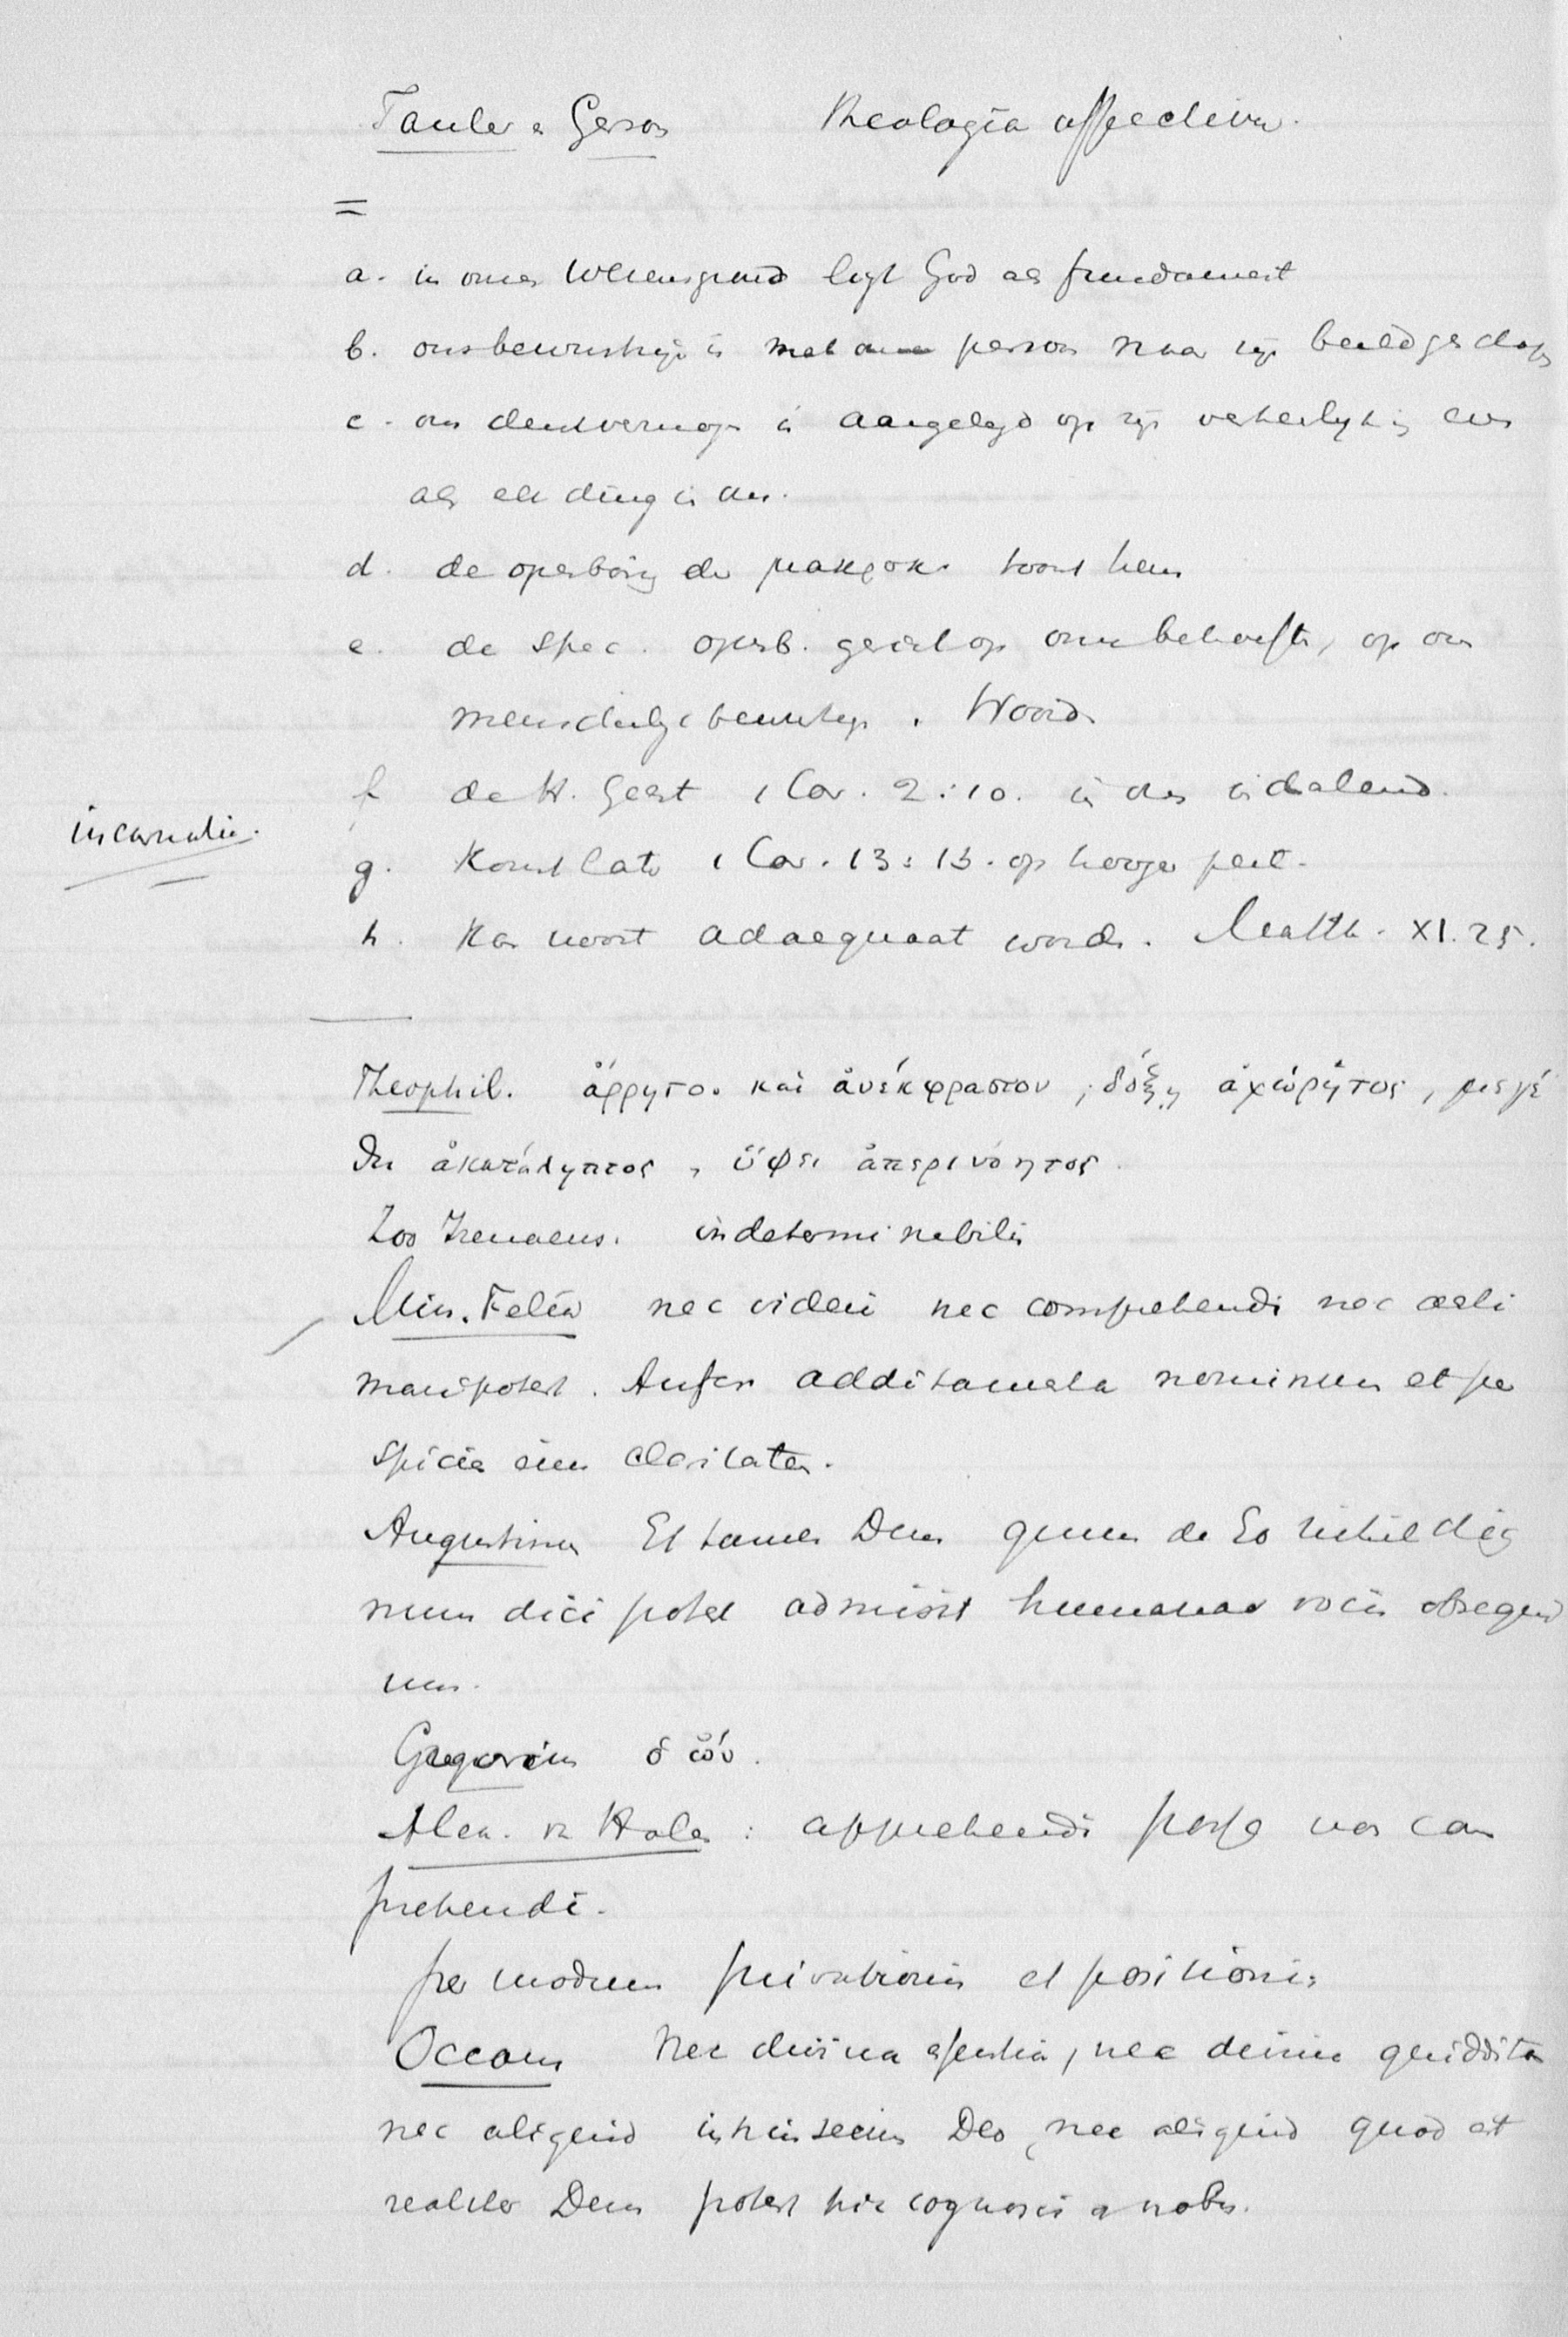 Tauler e Gerson Theologia affectiva.
=
a. in onzen wezensgrond ligt God als fundament
b. ons bewustzijn is met onze persoon naar zijn beeld geschapen
c. ons denkvermogen is aangelegd op zijn verheerlijking even
als elk ding in ons.
d. de openbaring der μακροκ. toont hem
e. de spec. openb. gericht op onze behoefte, op ons
menschelijk bewustzijn. Woord
f de H. Geest 1 Cor. 2:10. in ons indalend.
incarnatie.
g. Komt later 1 Cor. 13:13. op hooger peil.
h. Kan nooit adaequaat worden. Matth. XI.25.
Theophil. ἄρρητον καὶ ἀνέκφραστον, δόξῃ ἀχώρητος, μεγέ
θει ἀκατάληπτος, ὕψει ἀπερινόητος.
Zoo Irenaeus. indeterminabilis
Min. Felix nec videri nec comprehendi nec aesti
mari potest. Aufer additamenta nominum et per
spicies eius claritatem.
Augustinus Et tamen Deus quum de Eo nihil dig
num dici potest admisit humanae vocis obsequi
um.
Gregorius ὁ ὤν.
Alex. v. Hales: apprehendi posse non com
prehendi.
per modum privationis et positionis
Occam Nec divina essentia, nec divina quidditas
nec aliquid intrinsecum Deo, nec aliquid quod est
realiter Deus potest hic cognosci a nobis.